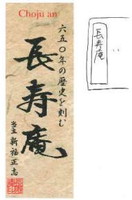 Choju an
六五〇年の歴史を刻む
長寿庵
当主 新福正志
長寿庵